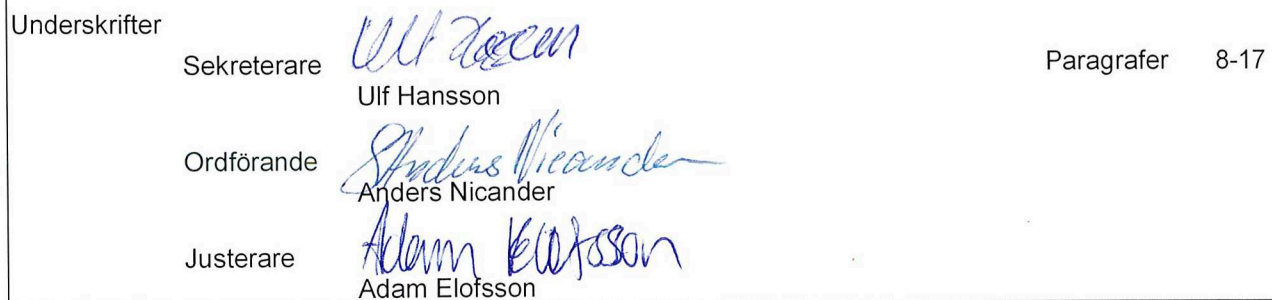 Underskrifter
Sekreterare Ulf Hansson Paragrafer 8-17
Ulf Hansson
Ordförande Anders Nicander
Anders Nicander
Justerare Adam Elofsson
Adam Elofsson